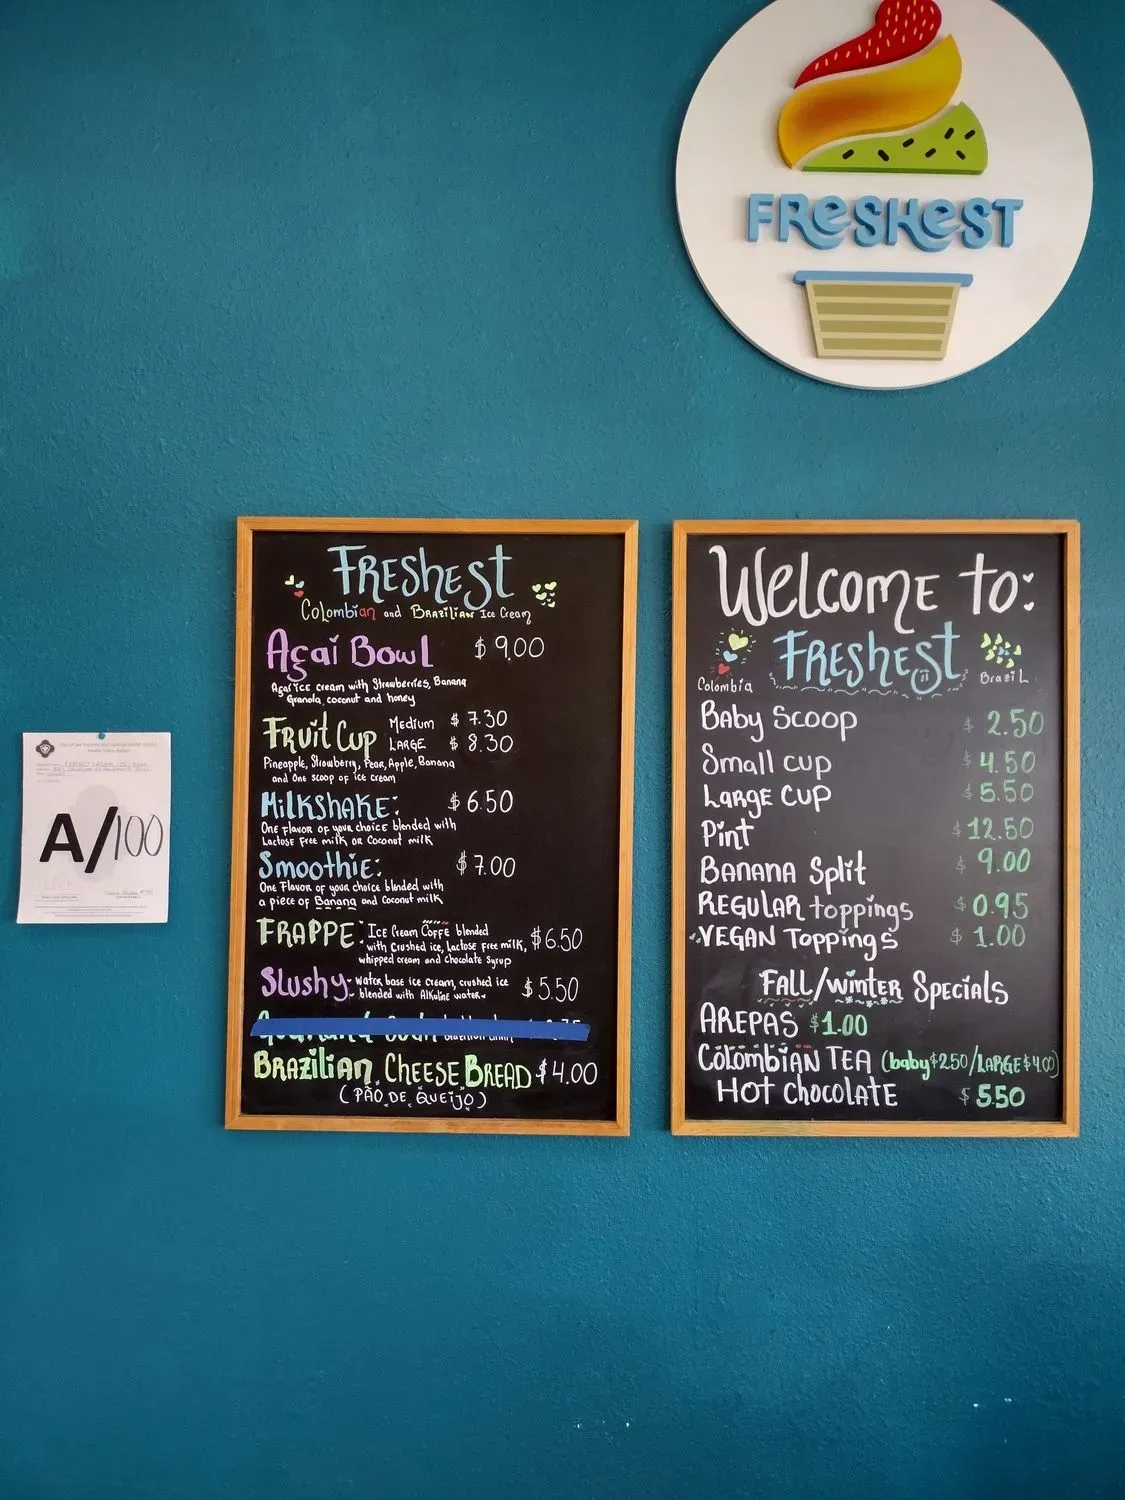 FRESHEST
FRESHEST
Colombian and BRAZILIAN Ice Cream
Açaí Bowl $ 9.00
Açaí ice cream with Strawberries, Banana
Granola, coconut and honey
FRuit Cup Medium $ 7.30
LARGE $ 8.30
Pineapple, Strawberry, Pear, Apple, Banana
and One scoop of ice cream
MilKSHAKE: $ 6.50
One flavor of your choice blended with
Lactose Free milk or Coconut milk
Smoothie: $ 7.00
One Flavor of your choice blended with
a piece of Banana and Coconut milk
FRAPPE: Ice Cream Coffe blended
with crushed ice, Lactose free milk, $6.50
whipped cream and chocolate Syrup
Slushy- water base ice cream, crushed ice $5.50
blended with Alkaline water-
BRAZILIAN CHEESE BREAD $4.00
(PÃO DE QUEIJO)
Welcome to:
FRESHEST
Colombia BraziL
BABY SCOOP $ 2.50
Small CUP $ 4.50
LARGE CUP $ 5.50
Pint $ 12.50
BANANA Split $ 9.00
REGULAR toppings $ 0.95
VEGAN Toppings $ 1.00
FALL/winter Specials
AREPAS $1.00
COLOMBIAN TEA (baby $2.50/LARGE $4.00)
HOT chocolatE $ 5.50
A/100